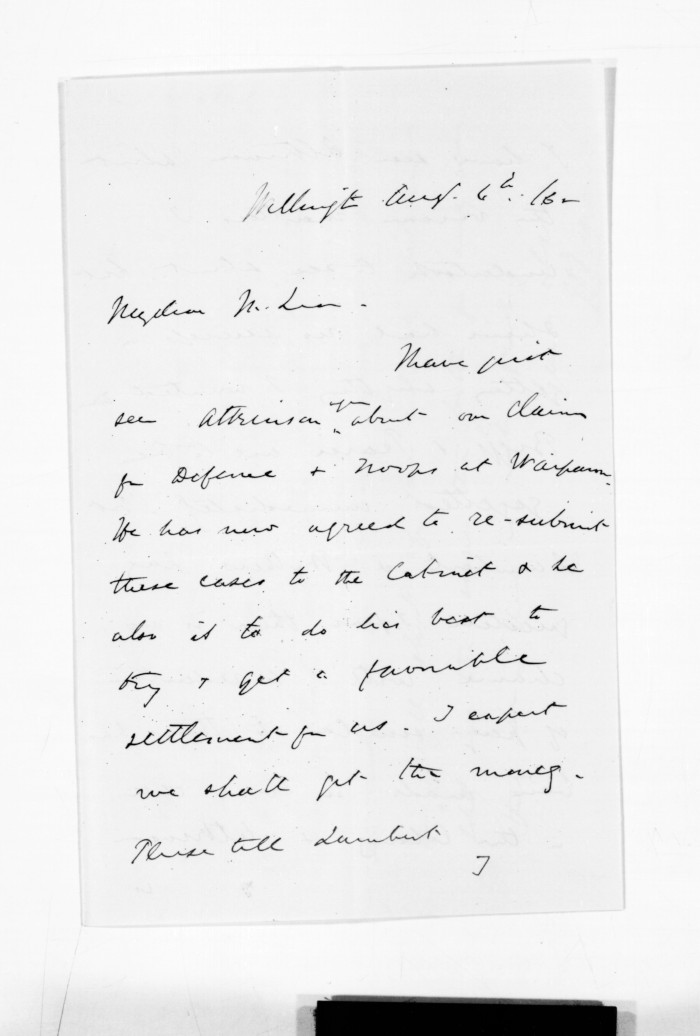 Augt. 6th.
My dear McLean.
I have just
see Atkinson again about our claim
for Defence & Troops at Waipawa.
He has now agreed to re-submit
these cases to the Cabinet & he
also is to do his best to
try & get a favorible
settlement for us. I expect
we shall get the money.
Please tell Lambert
I